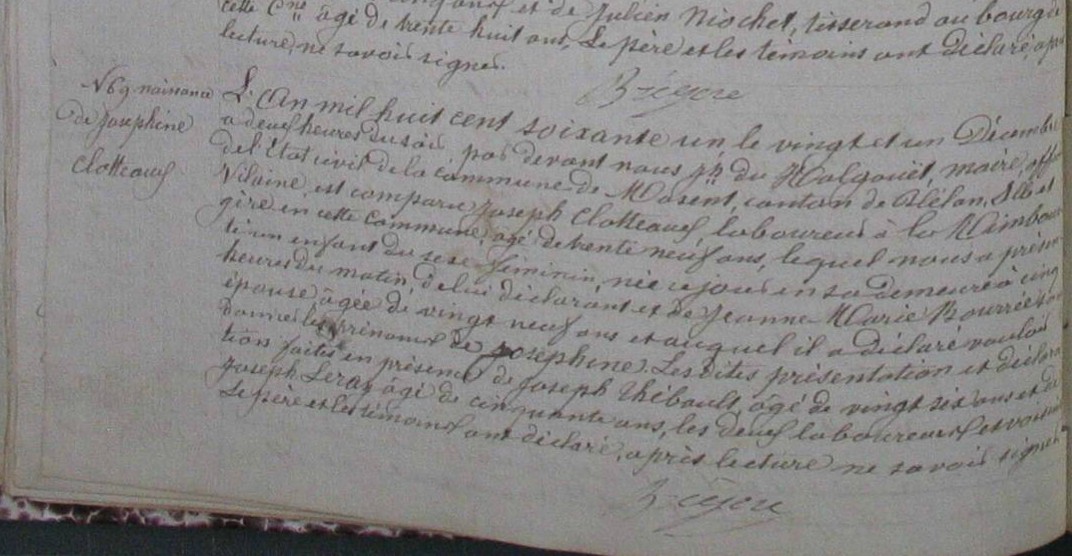 cette Cne âgé de trente huit ans, et de Julien Niochet, tisserand au bourg de
lecture, ne savoir signer. Le père et les témoins ont déclaré, après
N 69 naissance
de Josephine
Clotteaux
L'An mil huit cent soixante un, le vingt et un Décembre
a deux heures du soir, par devant nous du Halgouët, maire, officier
de l'état civil de la commune de Maxent, canton de Plélan, Ille et
Vilaine, est comparu Joseph Clotteaux, laboureur à la Rimbau
gère en cette commune, âgé de trente neuf ans, lequel nous a présen
té un enfant du sexe féminin, née ce jour en sa demeure à cinq
heures du matin, de lui déclarant et de Jeanne Marie Bourrée son
épouse, âgée de vingt neuf ans et auquel il a déclaré vouloir
donner les prénoms de Josephine. Les dites présentation et déclara
tion faites en présence de Joseph Thibault, âgé de vingt six ans et de
Joseph Leray âgé de cinquante ans, les deux laboureurs et voisins
Le père et les témoins ont déclaré, après lecture ne savoir signer.